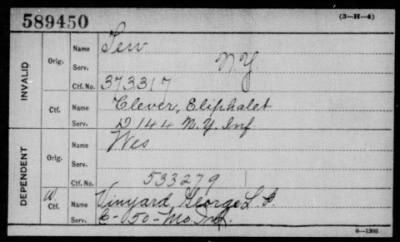 589450 (3-H-4)
INVALID
Orig.
Name
Serv. N Y
Ctf. No. 373317
Ctf.
Name Clever, Eliphalet
Serv. D 144 N.Y. Inf
DEPENDENT
Orig.
Name Wes
Serv.
Ctf. No. 533279
W Ctf.
Name Vinyard, George
Serv. E-150-Mo. Inf.
6-1390